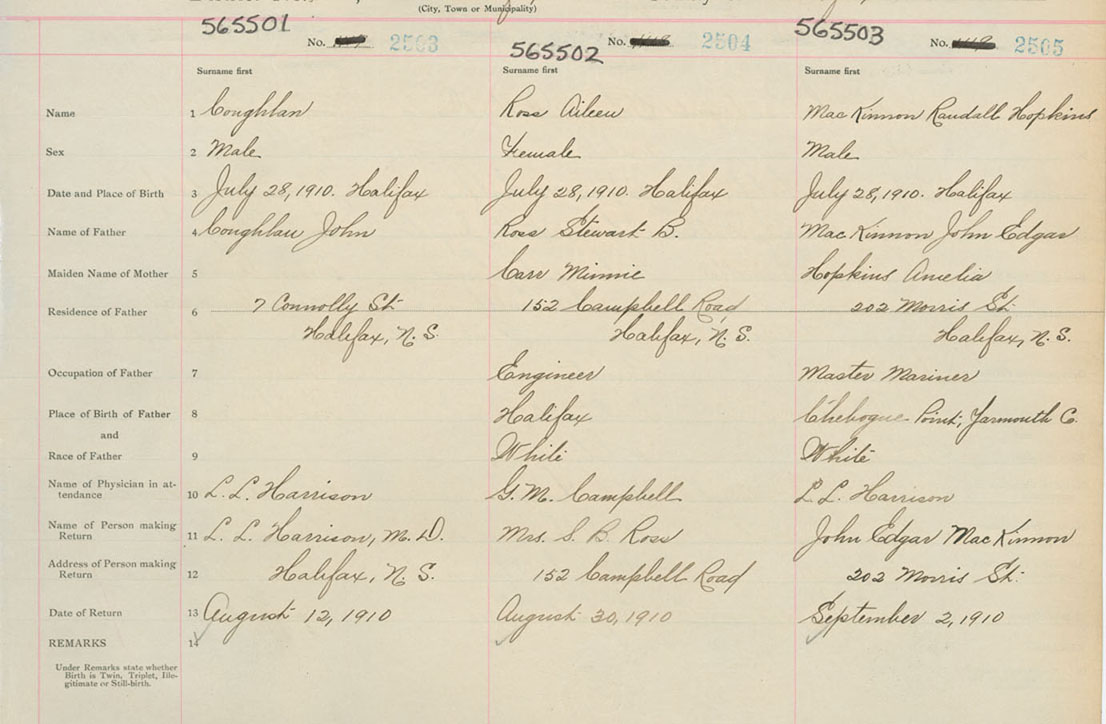 (City, Town or Municipality)
565501 No. 2503 565502 No. 2504 565503 No. 2505
Surname first Surname first Surname first
Name 1 Coughlan Ross Aileen MacKinnon Randall Hopkins
Sex 2 Male Female Male
Date and Place of Birth 3 July 28, 1910. Halifax July 28, 1910. Halifax July 28, 1910. Halifax
Name of Father 4 Coughlan John Ross Stewart B. MacKinnon John Edgar
Maiden Name of Mother 5 Carr Minnie Hopkins Amelia
Residence of Father 6 7 Connolly St. 152 Campbell Road 202 Morris St.
Halifax, N.S. Halifax, N.S. Halifax, N.S.
Occupation of Father 7 Engineer Master Mariner
Place of Birth of Father 8 Halifax Chebogue Point, Yarmouth C.
and
Race of Father 9 White White
Name of Physician in at-
tendance 10 L. L. Harrison G. M. Campbell L. L. Harrison
Name of Person making
Return 11 L. L. Harrison, M.D. Mrs. S. B. Ross John Edgar MacKinnon
Address of Person making
Return 12 Halifax, N.S. 152 Campbell Road 202 Morris St.
Date of Return 13 August 12, 1910 August 30, 1910 September 2, 1910
REMARKS 14
Under Remarks state whether
Birth is Twin, Triplet, Ille-
gitimate or Still-birth.